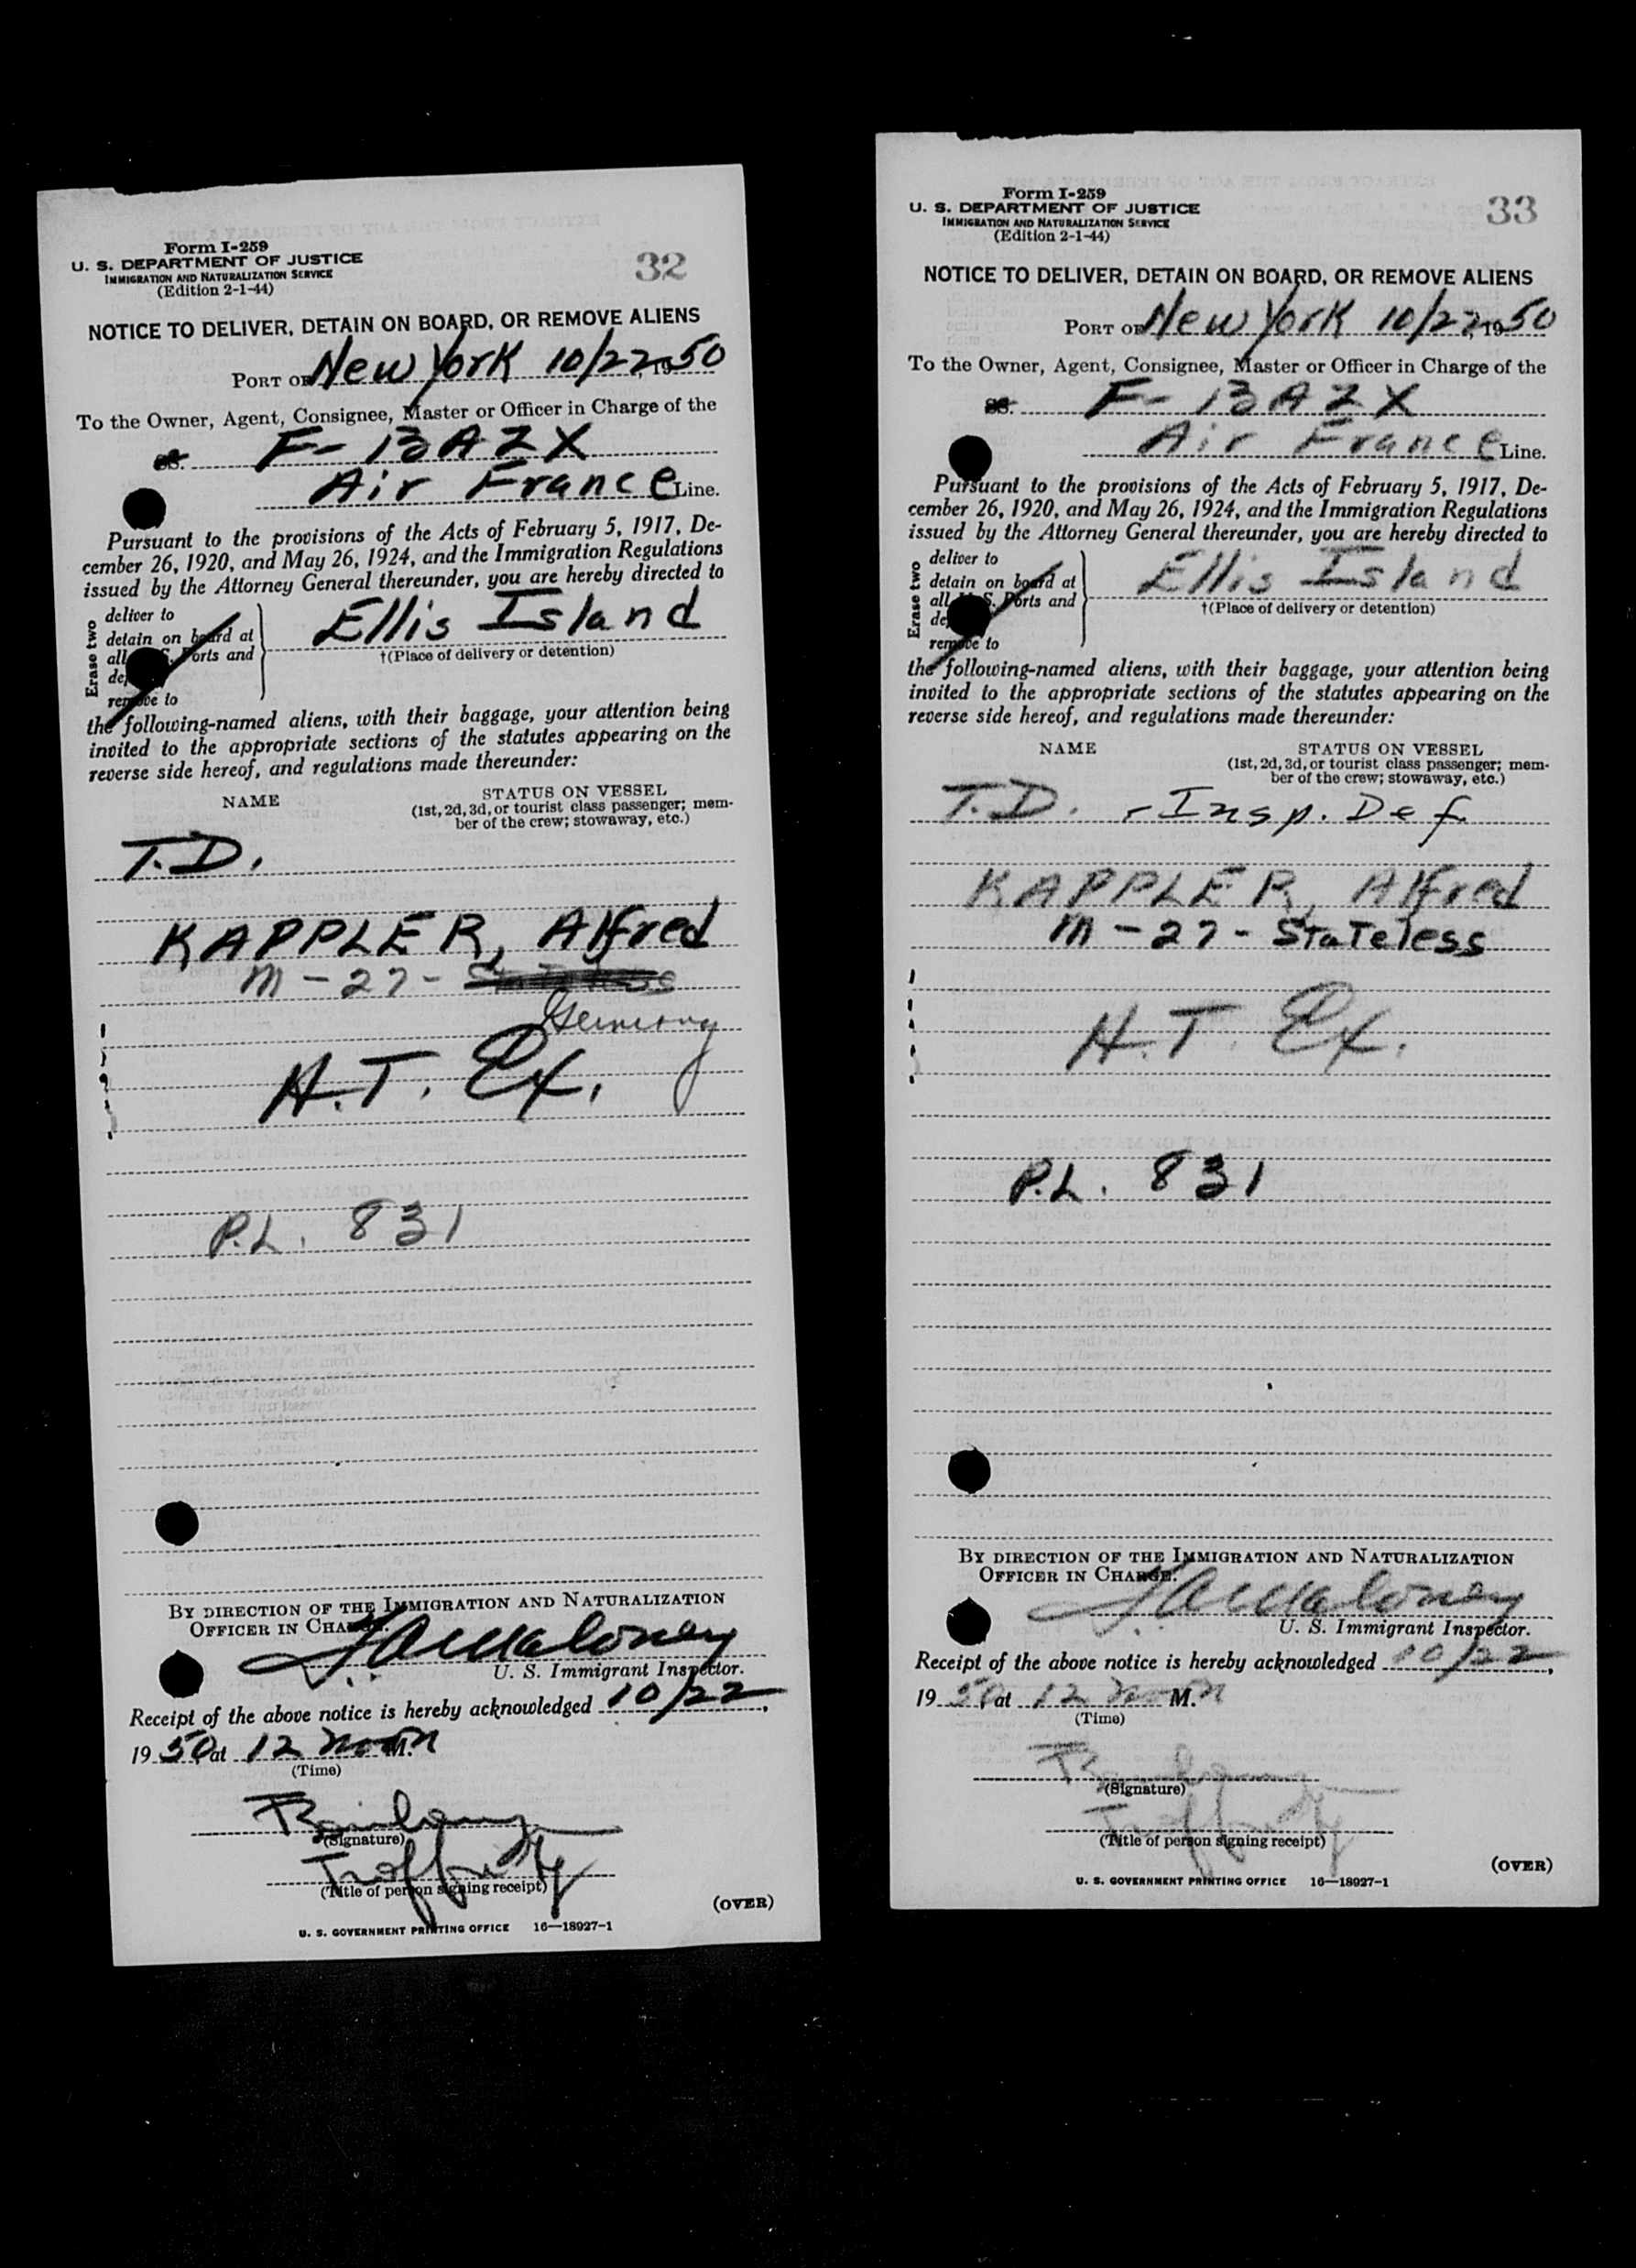 Form I-259
U. S. DEPARTMENT OF JUSTICE
IMMIGRATION AND NATURALIZATION SERVICE
(Edition 2-1-44)
32
NOTICE TO DELIVER, DETAIN ON BOARD, OR REMOVE ALIENS
PORT OF New York 10/22, 1950
To the Owner, Agent, Consignee, Master or Officer in Charge of the
SS. F-BAZX
Air France Line.
Pursuant to the provisions of the Acts of February 5, 1917, De-
cember 26, 1920, and May 26, 1924, and the Immigration Regulations
issued by the Attorney General thereunder, you are hereby directed to
Erase two
deliver to
detain on board at
all S. Ports and
remove to
Ellis Island
†(Place of delivery or detention)
the following-named aliens, with their baggage, your attention being
invited to the appropriate sections of the statutes appearing on the
reverse side hereof, and regulations made thereunder:
NAME
STATUS ON VESSEL
(1st, 2d, 3d, or tourist class passenger; mem-
ber of the crew; stowaway, etc.)
T.D.
KAPPLER, Alfred
M - 27 - Stateless
Germany
H.T. Ex.
P.L. 831
BY DIRECTION OF THE IMMIGRATION AND NATURALIZATION
OFFICER IN CHARGE.
Maloney
U. S. Immigrant Inspector.
Receipt of the above notice is hereby acknowledged 10/22,
1950, at 12 noon M.
(Time)
(Signature)
(Title of person signing receipt)
(OVER)
U. S. GOVERNMENT PRINTING OFFICE 16—18927-1
Form I-259
U. S. DEPARTMENT OF JUSTICE
IMMIGRATION AND NATURALIZATION SERVICE
(Edition 2-1-44)
33
NOTICE TO DELIVER, DETAIN ON BOARD, OR REMOVE ALIENS
PORT OF New York 10/22, 1950
To the Owner, Agent, Consignee, Master or Officer in Charge of the
SS. F-BAZX
Air France Line.
Pursuant to the provisions of the Acts of February 5, 1917, De-
cember 26, 1920, and May 26, 1924, and the Immigration Regulations
issued by the Attorney General thereunder, you are hereby directed to
Erase two
deliver to
detain on board at
all S. Ports and
remove to
Ellis Island
†(Place of delivery or detention)
the following-named aliens, with their baggage, your attention being
invited to the appropriate sections of the statutes appearing on the
reverse side hereof, and regulations made thereunder:
NAME
STATUS ON VESSEL
(1st, 2d, 3d, or tourist class passenger; mem-
ber of the crew; stowaway, etc.)
T.D. - Insp. Def
KAPPLER, Alfred
M - 27 - Stateless
H.T. Ex.
P.L. 831
BY DIRECTION OF THE IMMIGRATION AND NATURALIZATION
OFFICER IN CHARGE.
Maloney
U. S. Immigrant Inspector.
Receipt of the above notice is hereby acknowledged 10/22,
1950, at 12 noon M.
(Time)
(Signature)
(Title of person signing receipt)
(OVER)
U. S. GOVERNMENT PRINTING OFFICE 16—18927-1